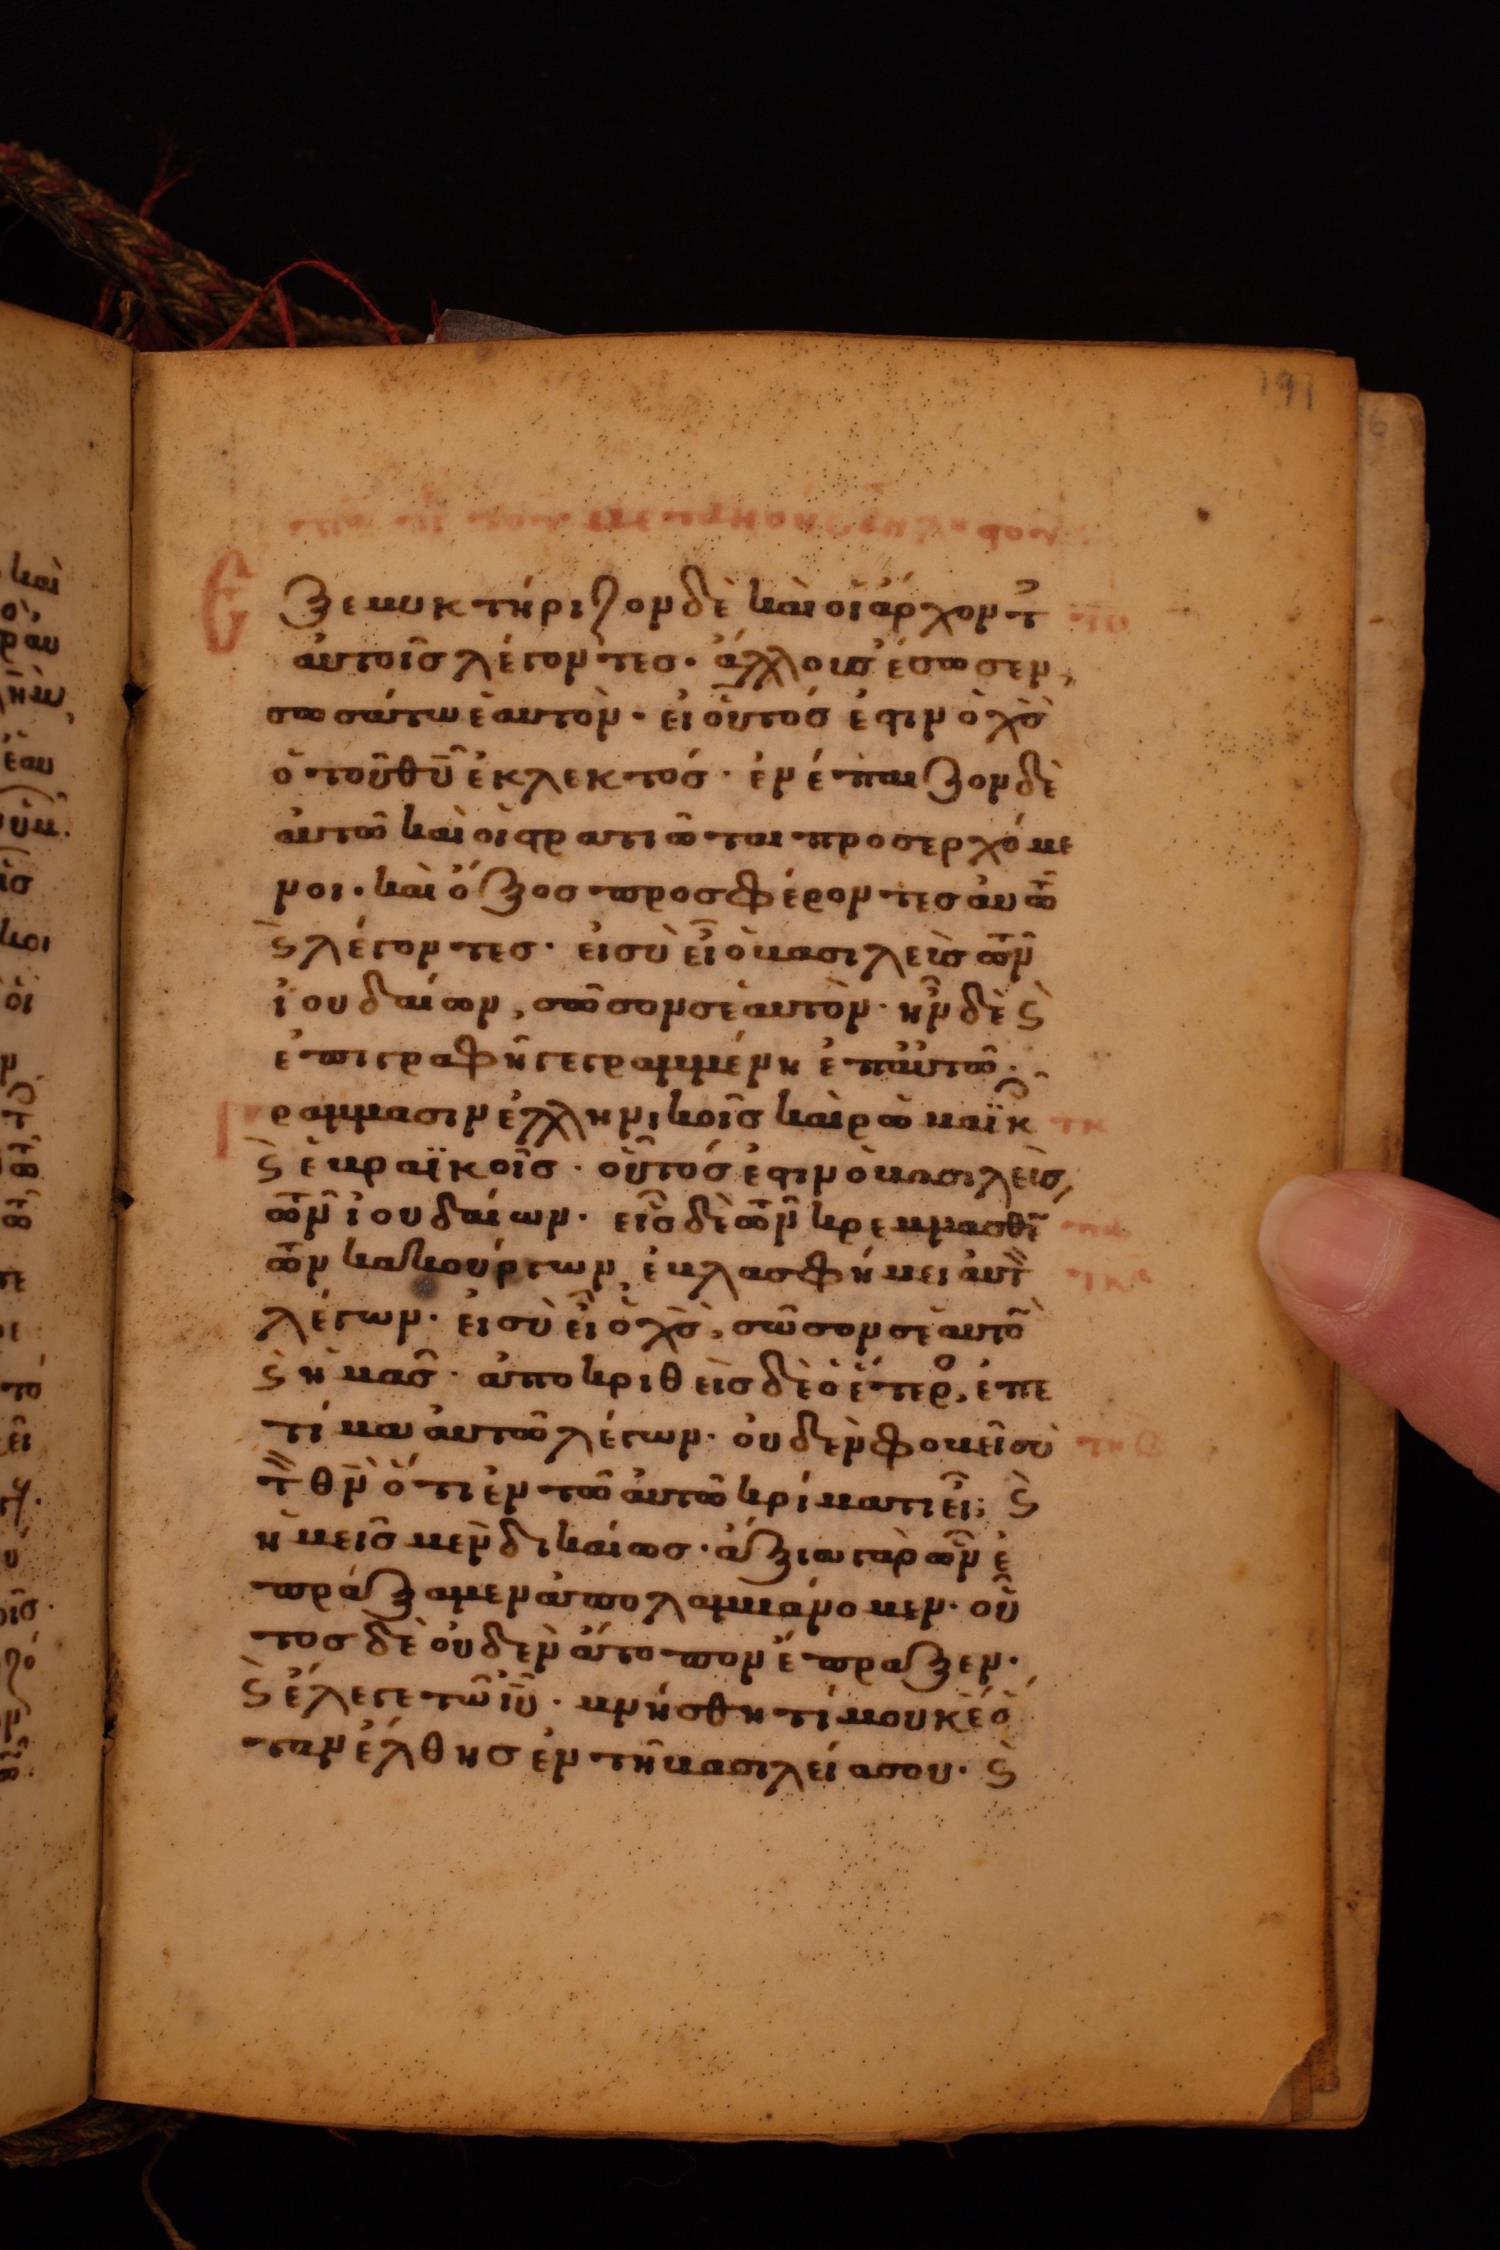 191
Ε ξεμυκτήριζον δὲ καὶ οἱ ἄρχοντ
αὐτοῖσ λέγοντεσ· ἄλλουσ ἔσωσεν,
σωσάτω ἑαυτὸν· εἰ οὗτοσ ἐστιν ὁ χσ
ὁ τοῦ θυ ἐκλεκτόσ· ἐνέπαιξον δὲ
αὐτῶ καὶ οἱ στρατιῶται προσερχόμε
νοι· καὶ ὄξοσ προσφέροντεσ αὐτῶ
ϛ λέγοντεσ· εἰ σὺ εἶ ὁ βασιλεὺσ τῶν
ἰουδαίων, σῶσον σεαυτὸν· ἦν δὲ ϛ
ἐπιγραφῆ γεγραμμένη ἐπ αὐτῶ·
Γ ραμμασιν ἑλληνικοῖσ καὶ ρωμαϊκ
ϛ ἑβραϊκοῖσ· οὗτόσ ἐστιν ὁ βασιλεὺσ,
τῶν ἰουδαίων· εἷσ δὲ τῶν κρεμασθ
τῶν κακούργων ἐβλασφήμει αὐτ
λέγων· εἰ σὺ εἶ ὁ χσ, σῶσον σεαυτο
ϛ ἡμᾶσ· ἀποκριθεὶσ δὲ ὁ ἕτερο, ἐπε
τίμα αὐτῶ λέγων· οὐδὲν φοβεῖ σὺ
τ θν ὅτι ἐν τῶ αὐτῶ κρίματι εἶ; ϛ
ἡμεῖσ μὲν δικαίωσ· ἄξια γὰρ ὧν ἐ
πράξαμεν ἀπολαμβάνομεν· οὗ
τοσ δὲ οὐδὲν ἄτοπον ἔπραξεν·
ϛ ἔλεγε τῶ ιυ· μνήσθητί μου κε ὅ
ταν ἔλθησ ἐν τῆ βασιλεία σου· ϛ